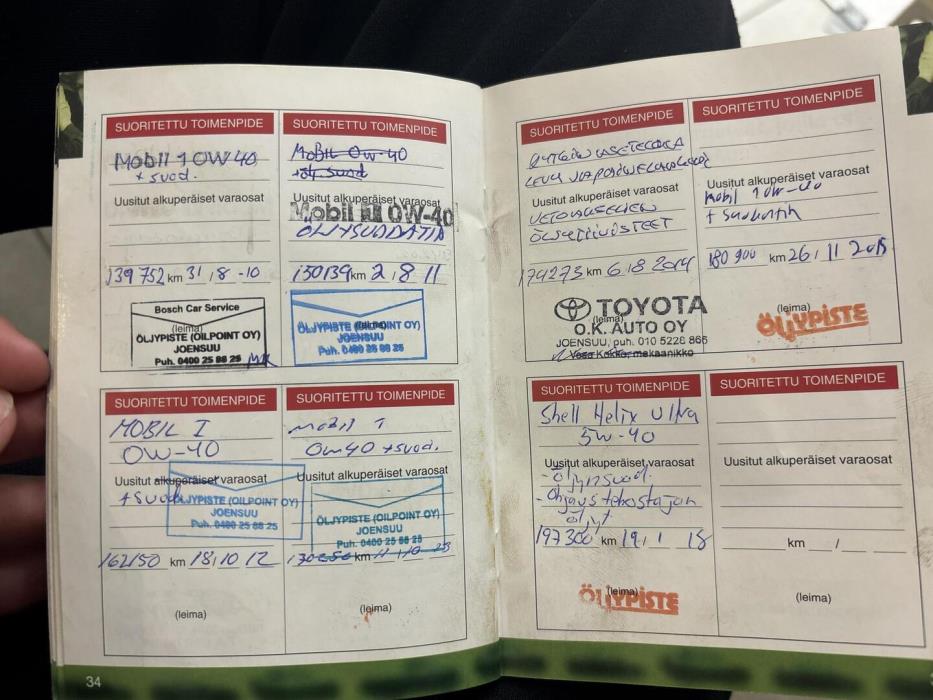 SUORITETTU TOIMENPIDE
Mobil 1 0W 40
+ suod.
Uusitut alkuperäiset varaosat
139 752 km 31 / 8 -10
Bosch Car Service
(leima)
ÖLJYPISTE (OILPOINT OY)
JOENSUU
Puh. 0400 25 88 25
SUORITETTU TOIMENPIDE
Mobil 0w-40
suod
Uusitut alkuperäiset varaosat
Mobil 1 0W-40
ÖLJYSUODATIN
150139 km 2 / 8 11
(leima)
ÖLJYPISTE (OILPOINT OY)
JOENSUU
Puh. 0400 25 88 25
SUORITETTU TOIMENPIDE
MOBIL I
0W-40
Uusitut alkuperäiset varaosat
+ Suod
ÖLJYPISTE (OILPOINT OY)
JOENSUU
Puh. 0400 25 88 25
162150 km 18 / 10 12
(leima)
SUORITETTU TOIMENPIDE
Mobil 1
0w40 + suod.
Uusitut alkuperäiset varaosat
ÖLJYPISTE (OILPOINT OY)
JOENSUU
Puh. 0400 25 88 25
km
(leima)
34
SUORITETTU TOIMENPIDE
Uusitut alkuperäiset varaosat
174273 km 6 / 8 2014
TOYOTA
(leima)
O.K. AUTO OY
JOENSUU, puh. 010 5226 865
Vesa Kokko, mekaanikko
SUORITETTU TOIMENPIDE
Uusitut alkuperäiset varaosat
Mobil 1 0w-40
+ Suodatin
180 900 km 26 / 11 2015
(leima)
ÖLJYPISTE
SUORITETTU TOIMENPIDE
Shell Helix Ultra
5w-40
Uusitut alkuperäiset varaosat
- Öljynsuod.
- Ohjaustehostajan
öljyt
197300 km 19 / 1 18
(leima)
ÖLJYPISTE
SUORITETTU TOIMENPIDE
Uusitut alkuperäiset varaosat
km /
(leima)